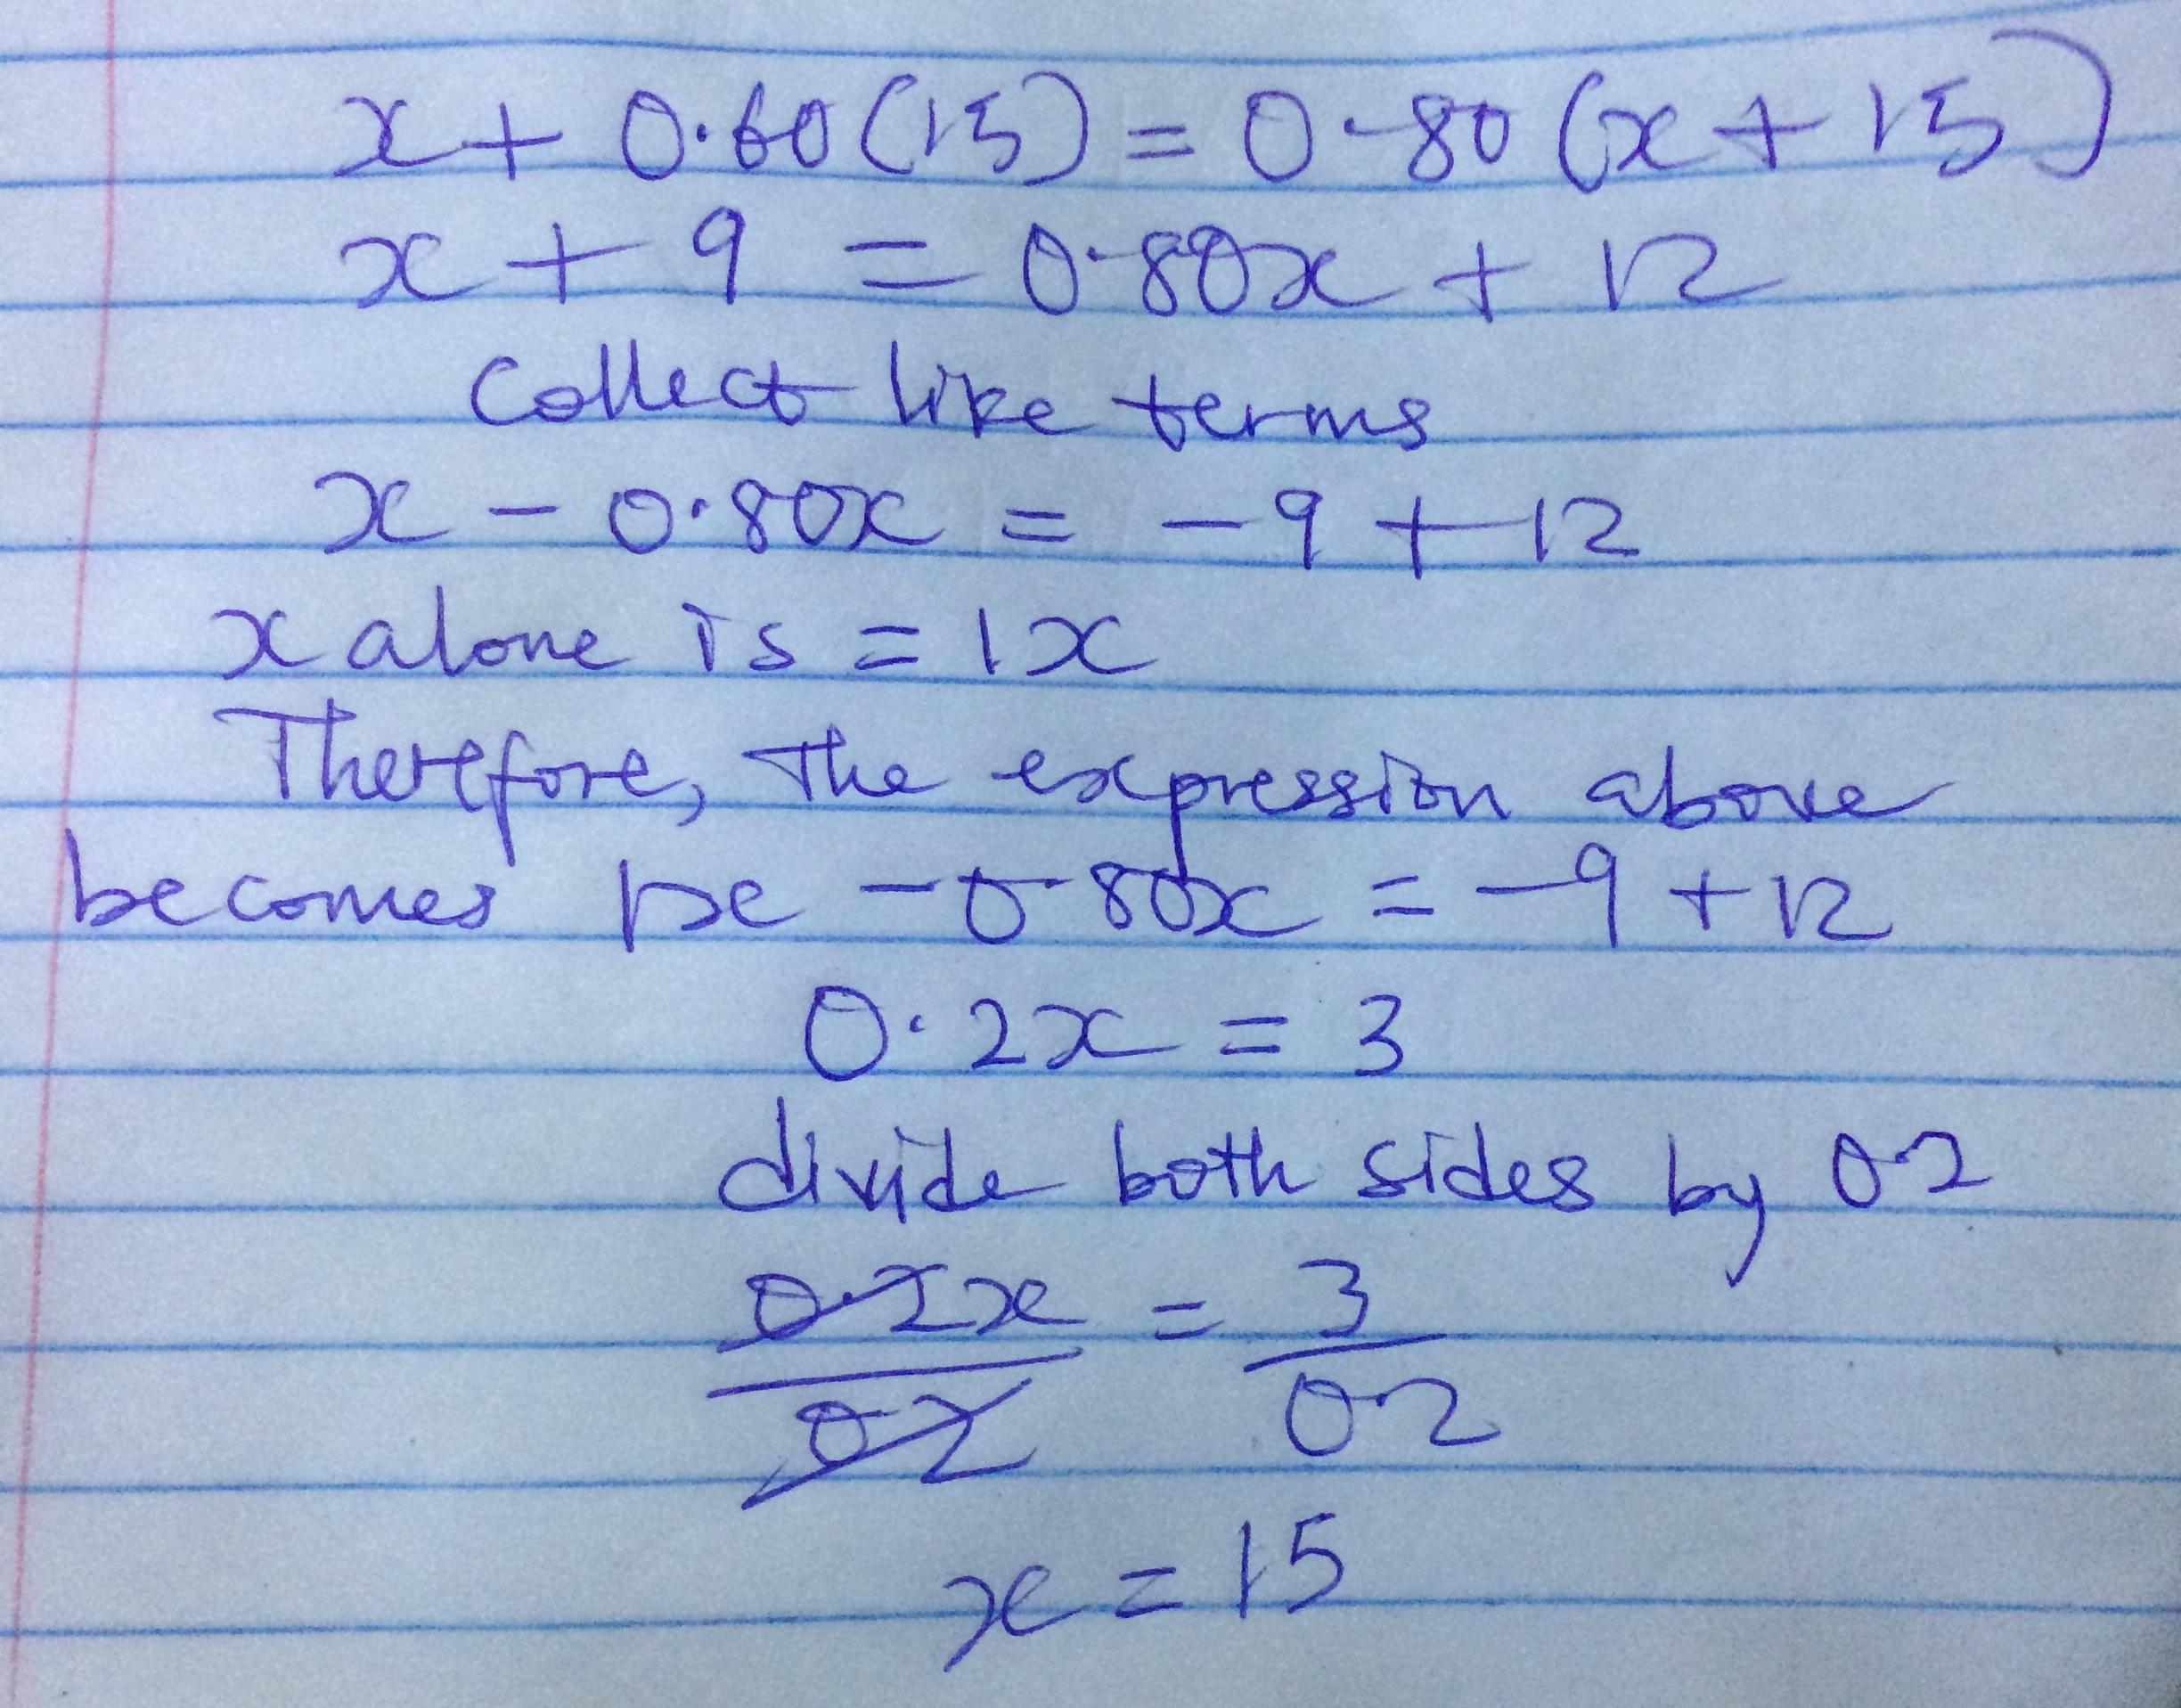 x + 0.60(15) = 0.80(x + 15)
x + 9 = 0.80x + 12
Collect like terms
x - 0.80x = -9 + 12
x alone is = 1x
Therefore, the expression above
becomes 1x - 0.80x = -9 + 12
0.2x = 3
divide both sides by 0.2
0.2x/0.2 = 3/0.2
x = 15